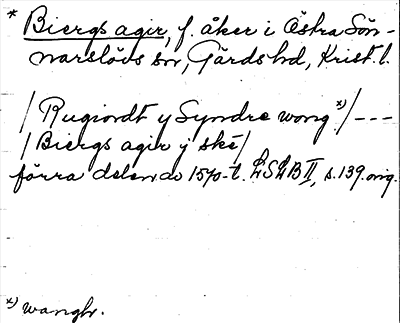 * Biergs agir, f. åker i Östra Sön-
narslövs sn, Gärds hd, Krist. l.
/ Rugiordt y Syndre wong x)/ ---
/ Biergs agir y ske/
förra delen av 1570-t. LSLB II, s. 139. orig.
x) wangh.